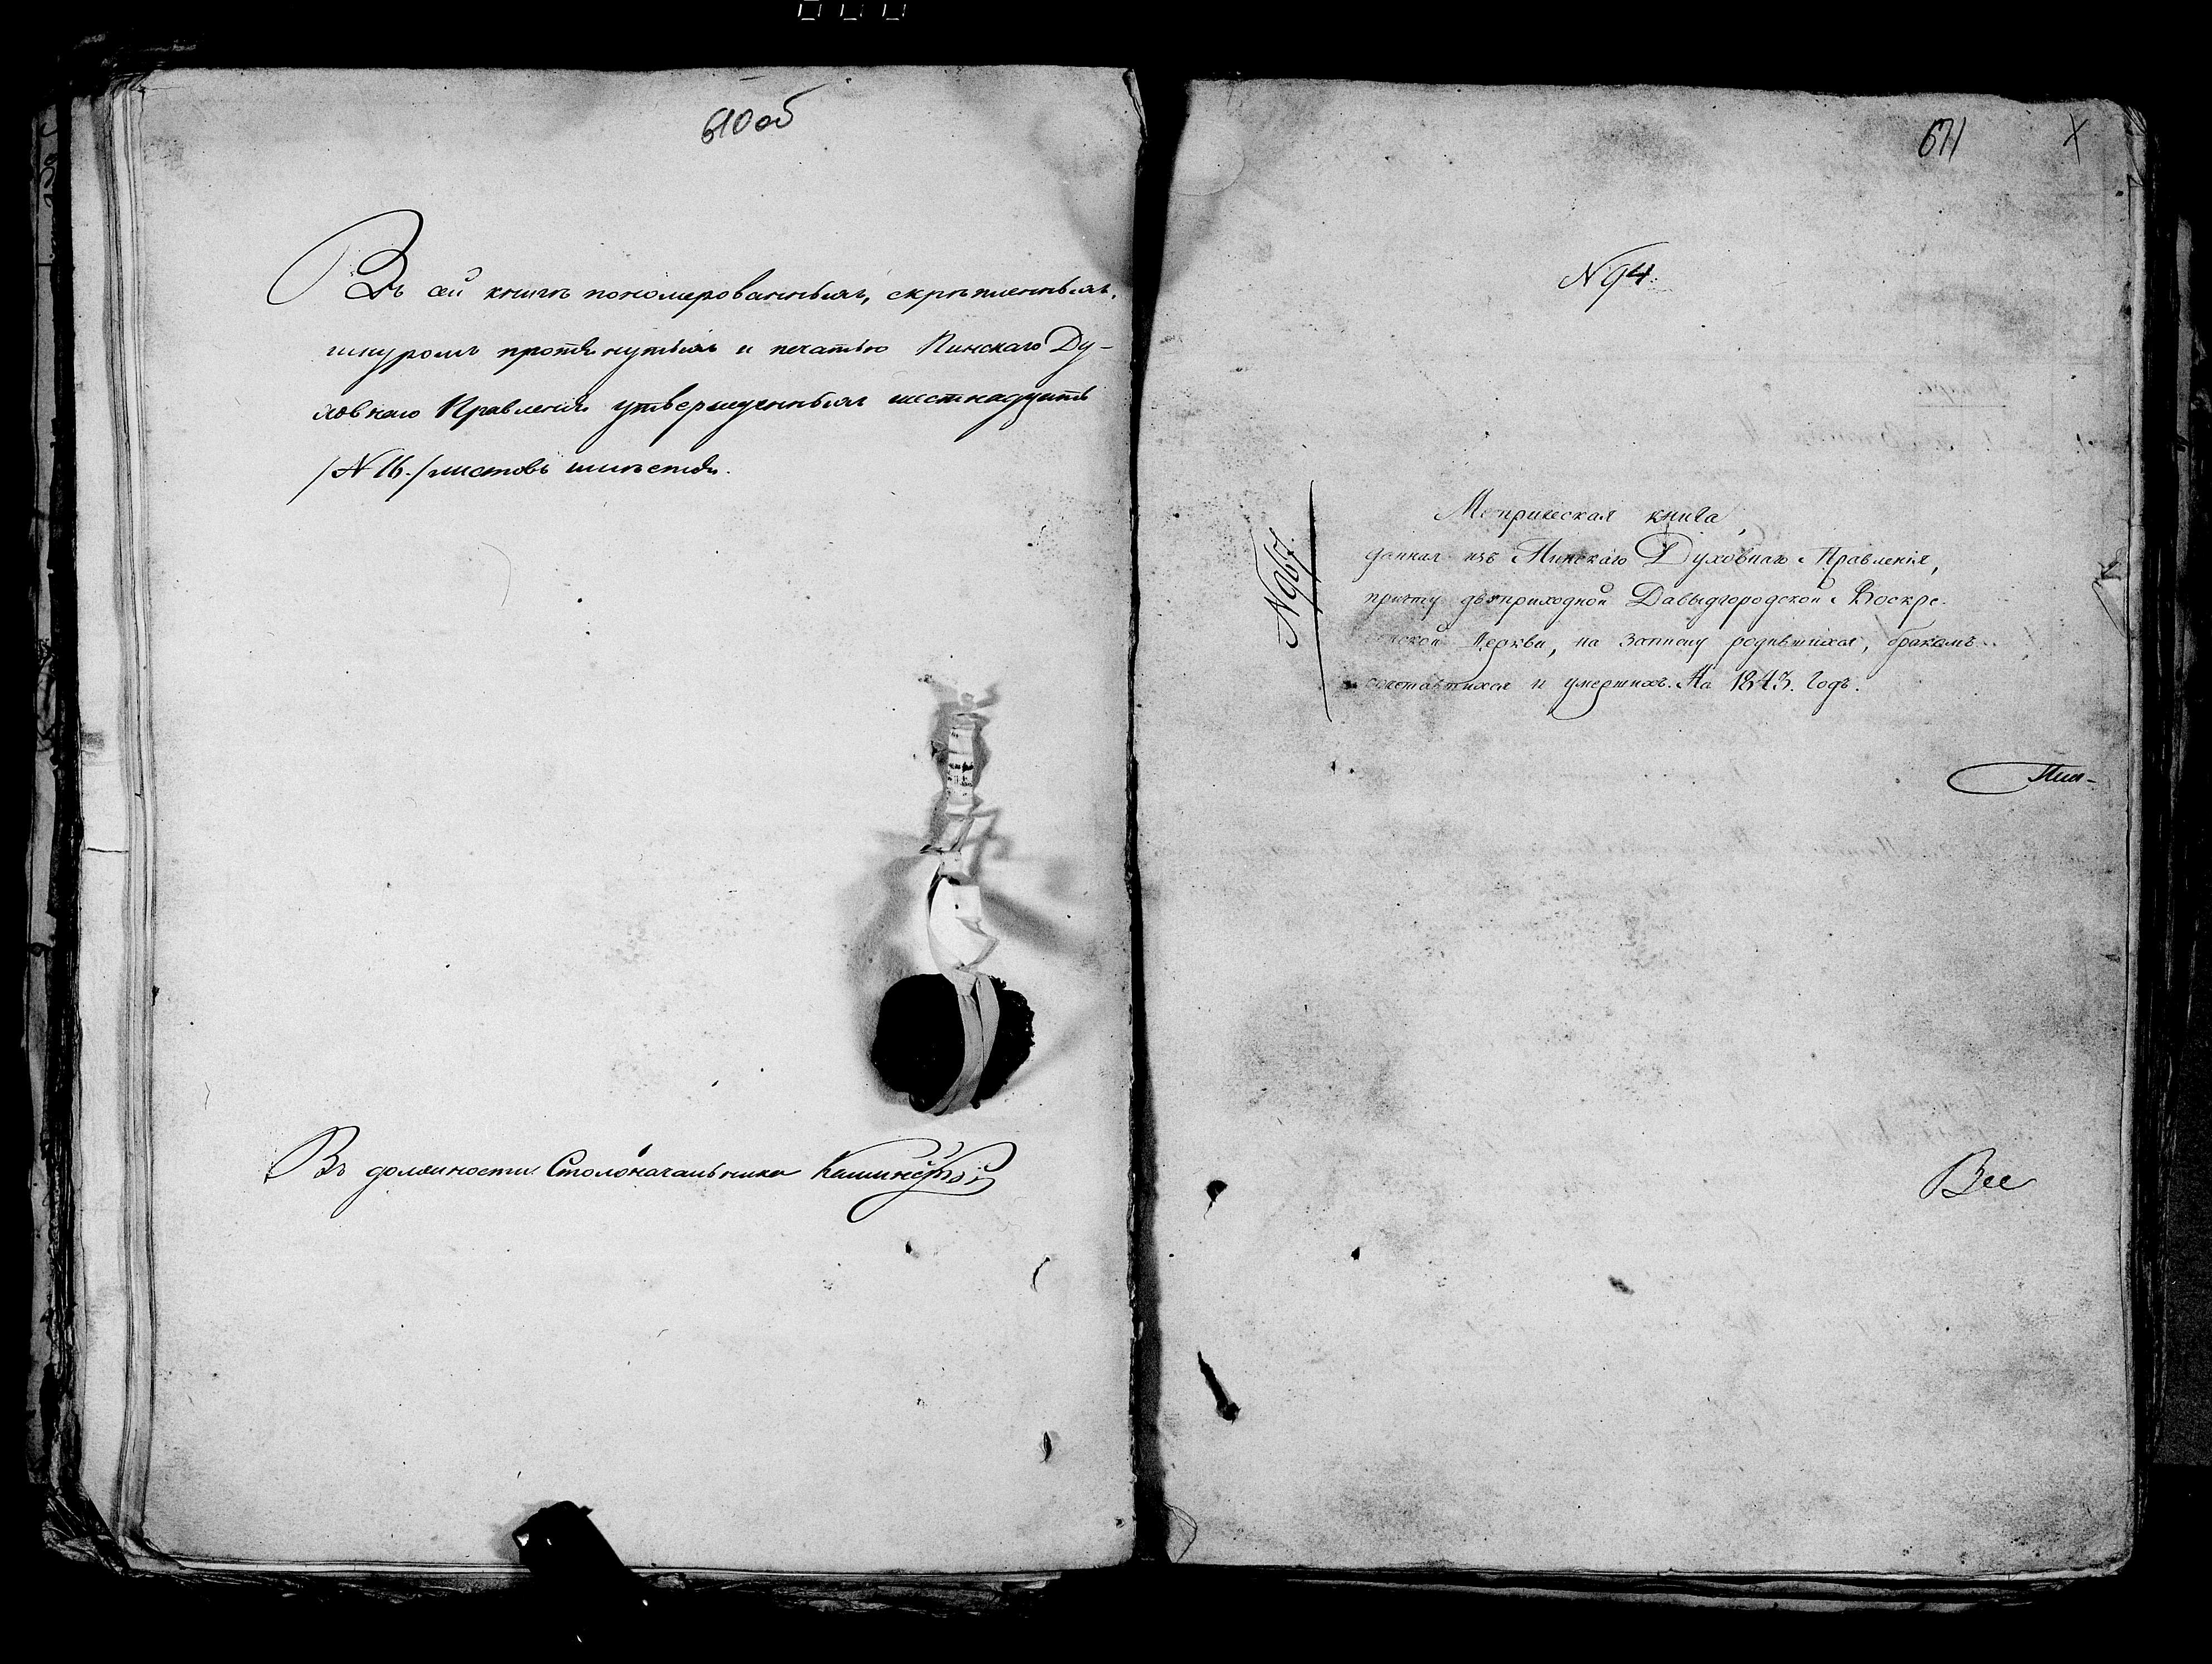 610об
Въ сей книгѣ пономерованныхъ, скрѣпленныхъ,
шнуромъ протянутыхъ и печатью Пинскаго Ду-
ховнаго Правленія утвержденныхъ шестнадцать
/№ 16./ листовъ имѣется.
Въ должности Столоначальника
611
X
№ 94.
№ 967.
Метрическая книга,
данная изъ Пинскаго Духовнаго Правленія,
причту двуприходной Давыдгородской Воскре-
сенской Церкви, на записку родившихся, бракомъ
сочетавшихся и умершихъ. На 1843. годъ.
Пин-